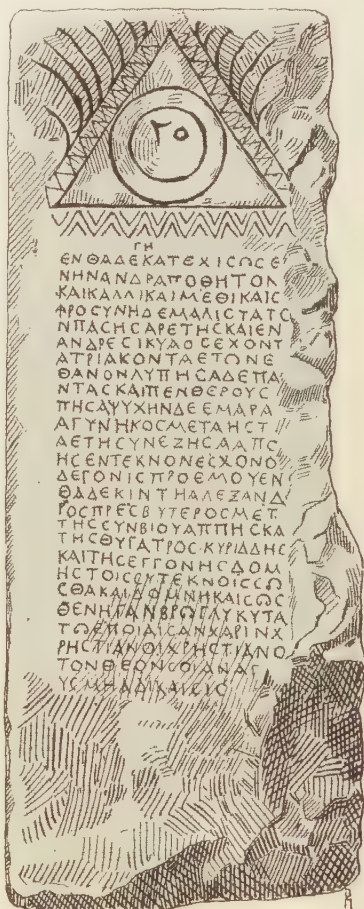 ΓΗ
ΕΝΘΑΔΕΚΑΤΕΧΙϹΩϹΕ
ΝΗΝΑΝΔΡΑΠΟΘΗΤΟΝ
ΚΑΙΚΑΛΛΙΚΑΙΜΕΘΙΚΑΙϹ
ΦΡΟϹΥΝΗΔΕΜΑΛΙϹΤΑΤϹ
ΝΠΑϹΗϹΑΡΕΤΗϹΚΑΙΕΝ
ΑΝΔΡΕϹΙΚΥΔΟϹΕΧΟΝΤ
ΑΤΡΙΑΚΟΝΤΑΕΤΩΝΕ
ΘΑΝΟΝΛΥΠΗϹΑΔΕΠΑ
ΝΤΑϹΚΑΙΠΕΝΘΕΡΟΥϹ
ΠΗϹΑΨΥΧΗΝΔΕΕΜΑΡΑ
ΑΓΥΝΗΚΟϹΜΕΤΑΗϹΤ
ΑΕΤΗϹΥΝΕΖΗϹΑΑΠϹ
ΗϹΕΝΤΕΚΝΟΝΕϹΧΟΝΟ
ΔΕΓΟΝΙϹΠΡΟΕΜΟΥΕΝ
ΘΑΔΕΚΙΝΤΗΑΛΕΞΑΝΔ
ΡΟϹΠΡΕϹΒΥΤΕΡΟϹΜΕΤ
ΤΗϹϹΥΝΒΙΟΥΑΠΠΗϹΚΑ
ΤΗϹΘΥΓΑΤΡΟϹ·ΚΥΡΙΔΔΗϹ
ΚΑΙΤΗϹΕΓΓΟΝΗϹΔΟΜ
ΗϹΤΟΙϹϹΥΤΕΚΝΟΙϹϹΩ
ϹΘΑΚΑΙΔΟΜΝΗΚΑΙϹΩϹ
ΘΕΝΗΓΑΝΒΡΩΓΛΥΚΥΤΑ
ΤΩΕΠΟΙΑΙϹΑΝΧΑΡΙΝΧ
ΡΗϹΤΙΑΝΟΙΧΡΗϹΤΙΑΝΟ
ΤΟΝΘΕΟΝϹΟΙΑΝΑΓ